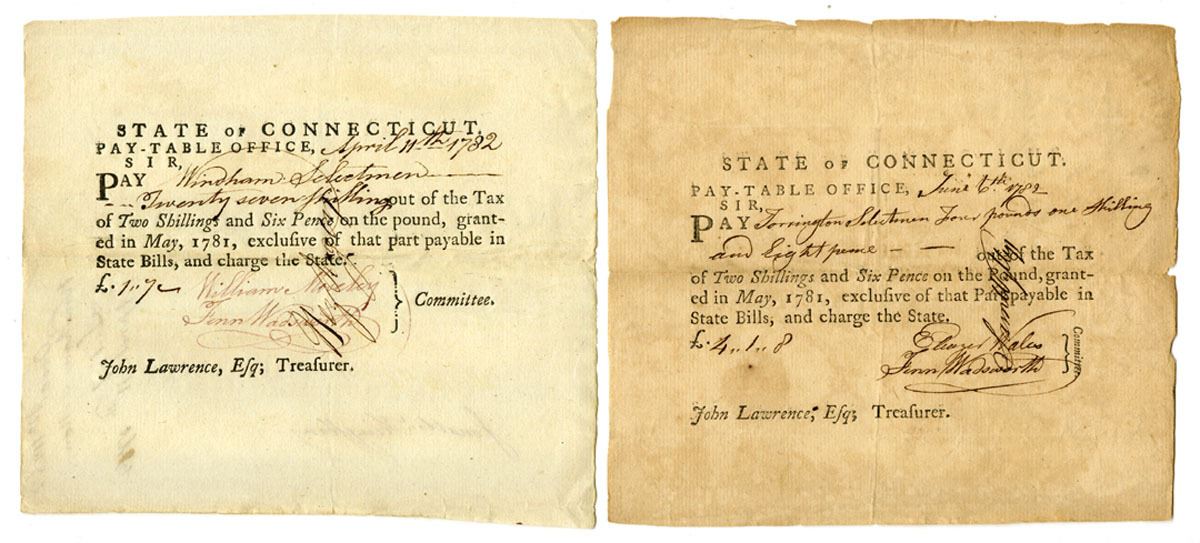 STATE OF CONNECTICUT.
PAY-TABLE OFFICE, April 11th 1782
SIR,
PAY Windham Selectmen
Twenty seven shillings out of the Tax
of Two Shillings and Six Pence on the pound, grant-
ed in May, 1781, exclusive of that part payable in
State Bills, and charge the State.
£. 1..7
William Mosely
Fenn Wadsworth
Committee.
John Lawrence, Eſq; Treaſurer.
STATE OF CONNECTICUT.
PAY-TABLE OFFICE, June 6th 1782
SIR,
PAY Torrington Selectmen Four pounds one shilling
and Eight pence — — out of the Tax
of Two Shillings and Six Pence on the Pound, grant-
ed in May, 1781, exclusive of that Part payable in
State Bills, and charge the State.
£. 4..1..8
Eleazer Wales
Fenn Wadsworth
Committee.
John Lawrence, Eſq; Treaſurer.